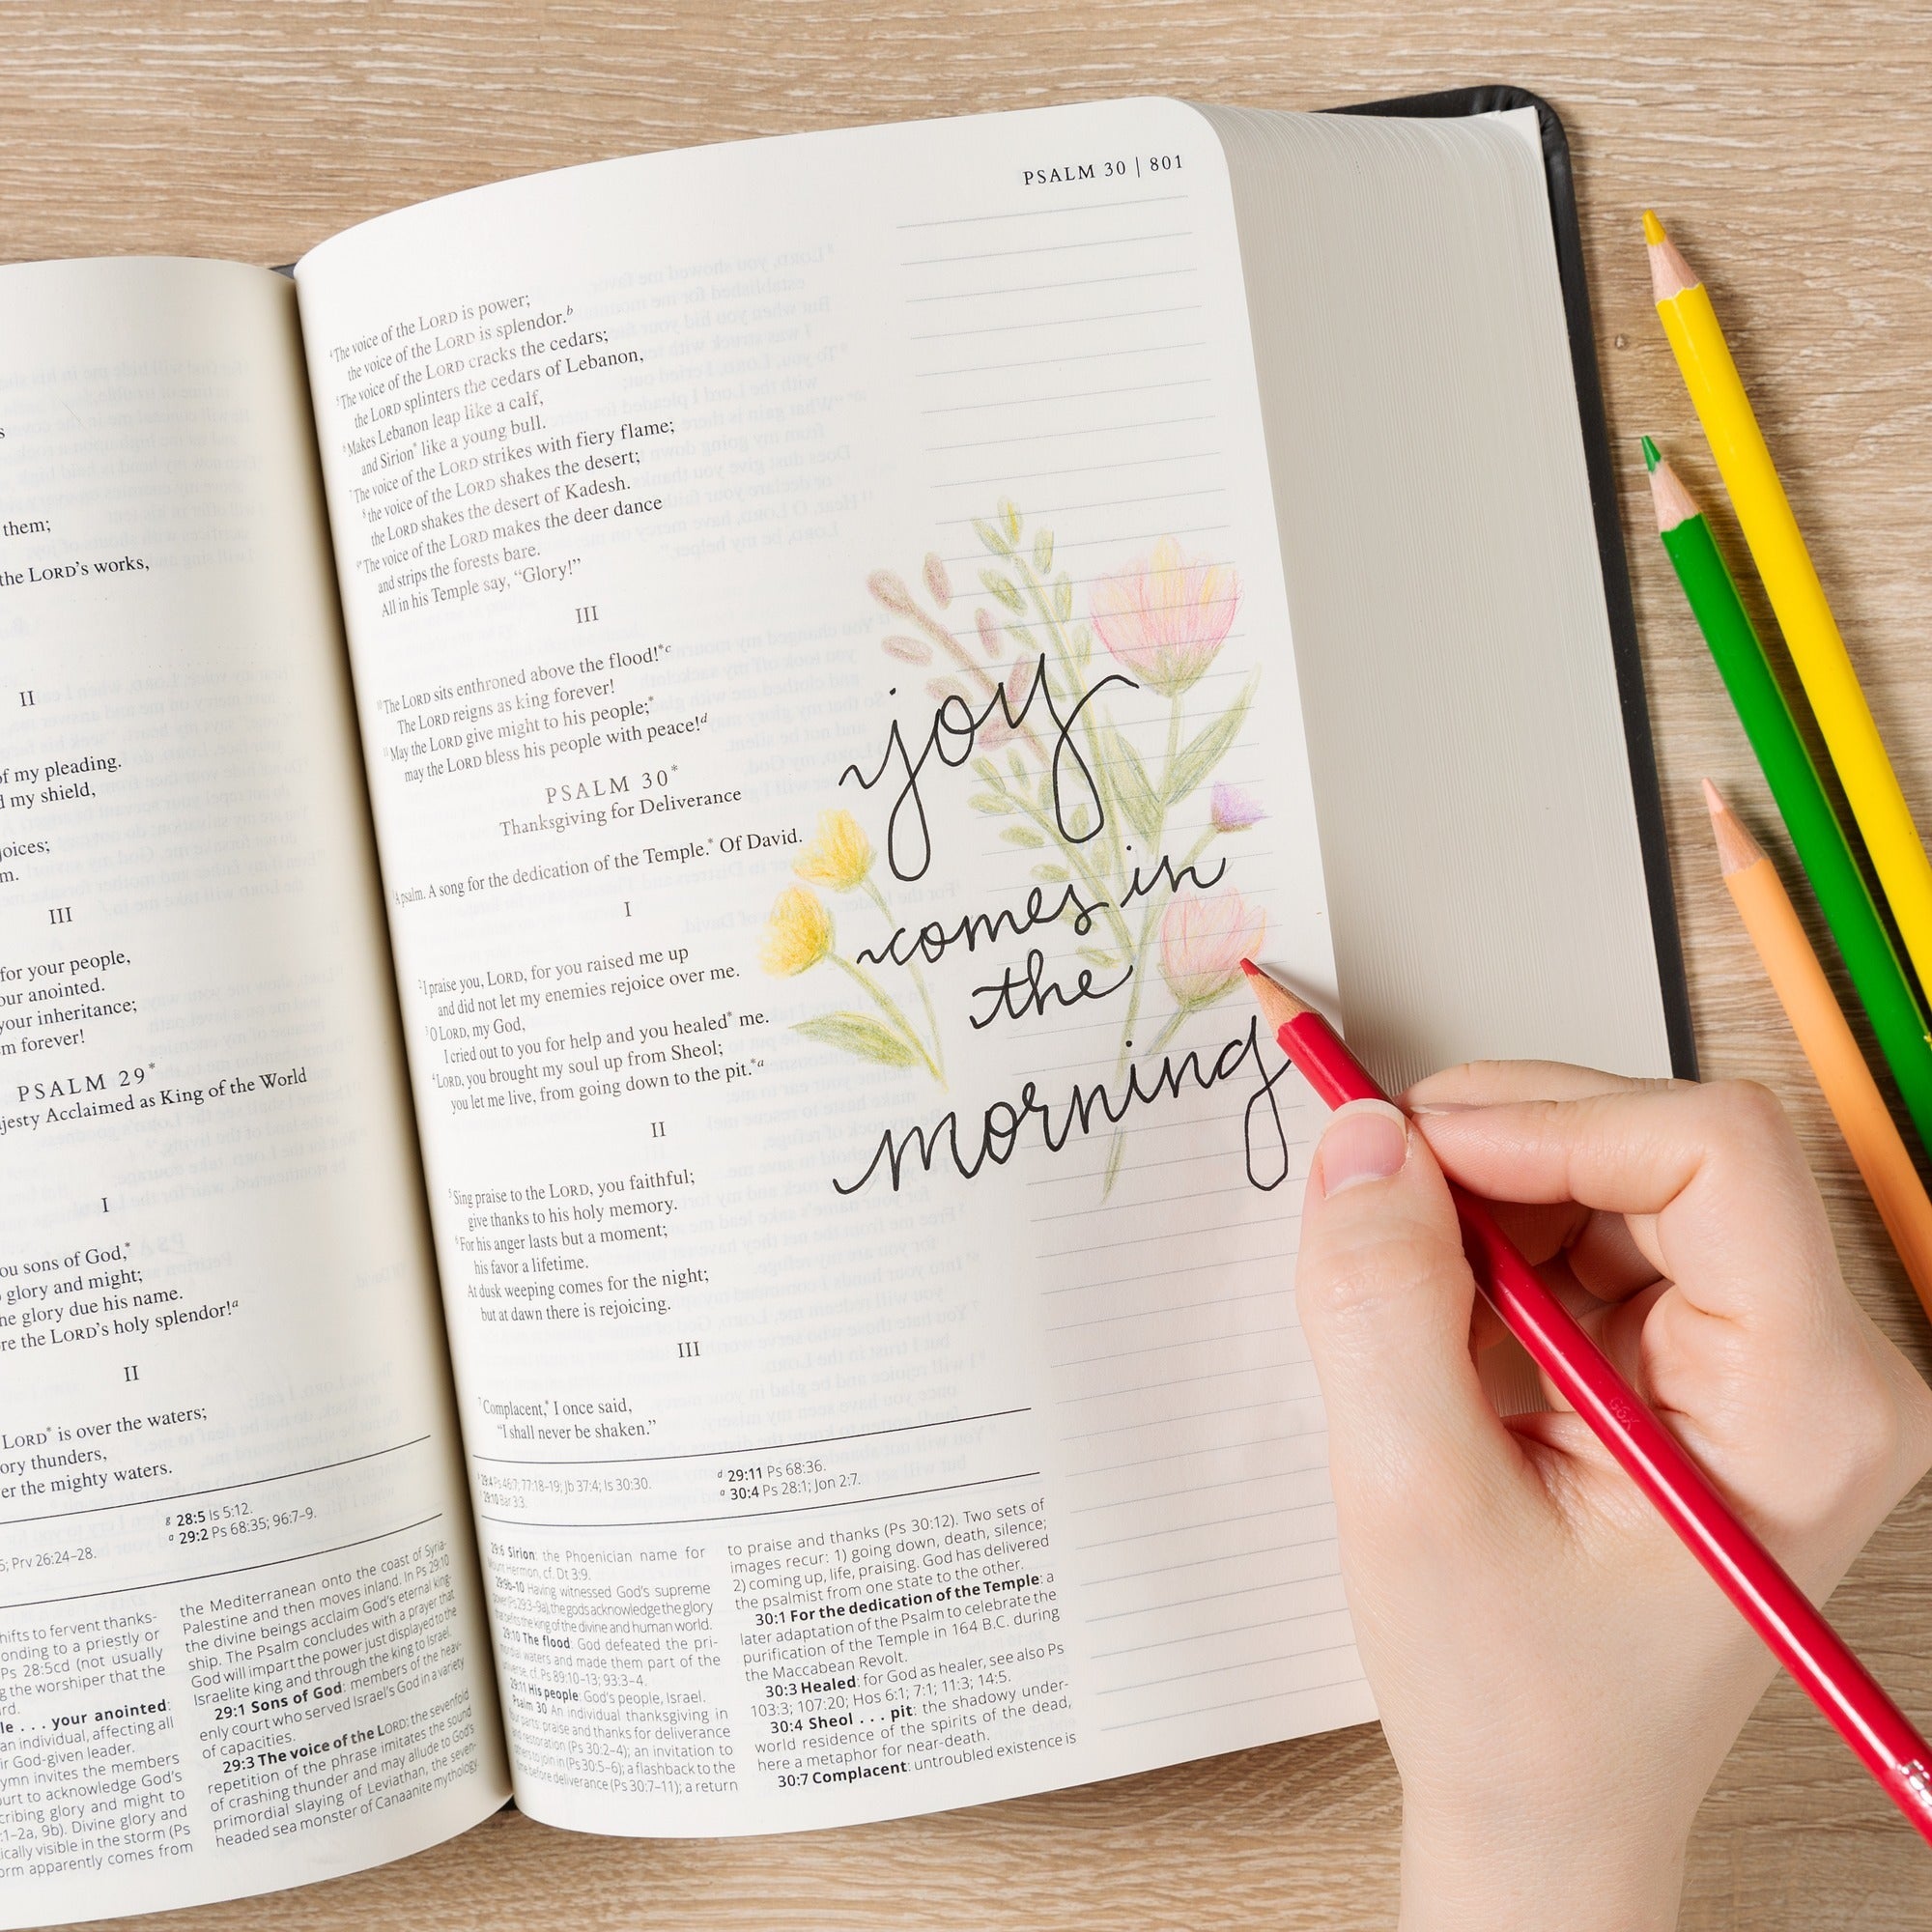 them;
the LORD's works,
II
of my pleading.
my shield,
III
for your people,
your inheritance;
forever!
PSALM 29*
Acclaimed as King of the World
I
sons of God,*
glory and might;
glory due his name.
the LORD's holy splendor!a
II
LORD* is over the waters;
thunders,
the mighty waters.
g 28:5 Is 5:12.
Prv 26:24–28.
a 29:2 Ps 68:35; 96:7–9.
onding to a priestly or
Ps 28:5cd (not usually
the worshiper that the
. . . your anointed:
an individual, affecting all
God-given leader.
invites the members
to acknowledge God's
glory and might to
9b). Divine glory and
visible in the storm (Ps
apparently comes from
the Mediterranean onto the coast of Syria-
Palestine and then moves inland. In Ps 29:10
the divine beings acclaim God's eternal king-
ship. The Psalm concludes with a prayer that
God will impart the power just displayed to the
Israelite king and through the king to Israel.
29:1 Sons of God: members of the heav-
enly court who served Israel's God in a variety
of capacities.
29:3 The voice of the LORD: the sevenfold
repetition of the phrase imitates the sound
of crashing thunder and may allude to God's
primordial slaying of Leviathan, the seven-
headed sea monster of Canaanite mythology.
PSALM 30 | 801
4The voice of the LORD is power;
the voice of the LORD is splendor.b
5The voice of the LORD cracks the cedars;
the LORD splinters the cedars of Lebanon,
6Makes Lebanon leap like a calf,
and Sirion* like a young bull.
7The voice of the LORD strikes with fiery flame;
8the voice of the LORD shakes the desert;
the LORD shakes the desert of Kadesh.
9*The voice of the LORD makes the deer dance
and strips the forests bare.
All in his Temple say, “Glory!”
III
10The LORD sits enthroned above the flood!*c
The LORD reigns as king forever!
11May the LORD give might to his people;*
may the LORD bless his people with peace!d
PSALM 30*
Thanksgiving for Deliverance
1A psalm. A song for the dedication of the Temple.* Of David.
I
2I praise you, LORD, for you raised me up
and did not let my enemies rejoice over me.
3O LORD, my God,
I cried out to you for help and you healed* me.
4LORD, you brought my soul up from Sheol;
you let me live, from going down to the pit.*a
II
5Sing praise to the LORD, you faithful;
give thanks to his holy memory.
6For his anger lasts but a moment;
his favor a lifetime.
At dusk weeping comes for the night;
but at dawn there is rejoicing.
III
7Complacent,* I once said,
“I shall never be shaken.”
joy
comes in
the
morning
b 29:4 Ps 46:7; 77:18–19; Jb 37:4; Is 30:30.
c 29:10 Bar 3:3.
d 29:11 Ps 68:36.
a 30:4 Ps 28:1; Jon 2:7.
29:6 Sirion: the Phoenician name for
Mount Hermon, cf. Dt 3:9.
29:9b–10 Having witnessed God's supreme
power (Ps 29:3–9a), the gods acknowledge the glory
that befits the king of the divine and human world.
29:10 The flood: God defeated the pri-
mordial waters and made them part of the
universe, cf. Ps 89:10–13; 93:3–4.
29:11 His people: God's people, Israel.
Psalm 30 An individual thanksgiving in
four parts: praise and thanks for deliverance
and restoration (Ps 30:2–4); an invitation to
others to join in (Ps 30:5–6); a flashback to the
time before deliverance (Ps 30:7–11); a return
to praise and thanks (Ps 30:12). Two sets of
images recur: 1) going down, death, silence;
2) coming up, life, praising. God has delivered
the psalmist from one state to the other.
30:1 For the dedication of the Temple: a
later adaptation of the Psalm to celebrate the
purification of the Temple in 164 B.C. during
the Maccabean Revolt.
30:3 Healed: for God as healer, see also Ps
103:3; 107:20; Hos 6:1; 7:1; 11:3; 14:5.
30:4 Sheol . . . pit: the shadowy under-
world residence of the spirits of the dead,
here a metaphor for near-death.
30:7 Complacent: untroubled existence is